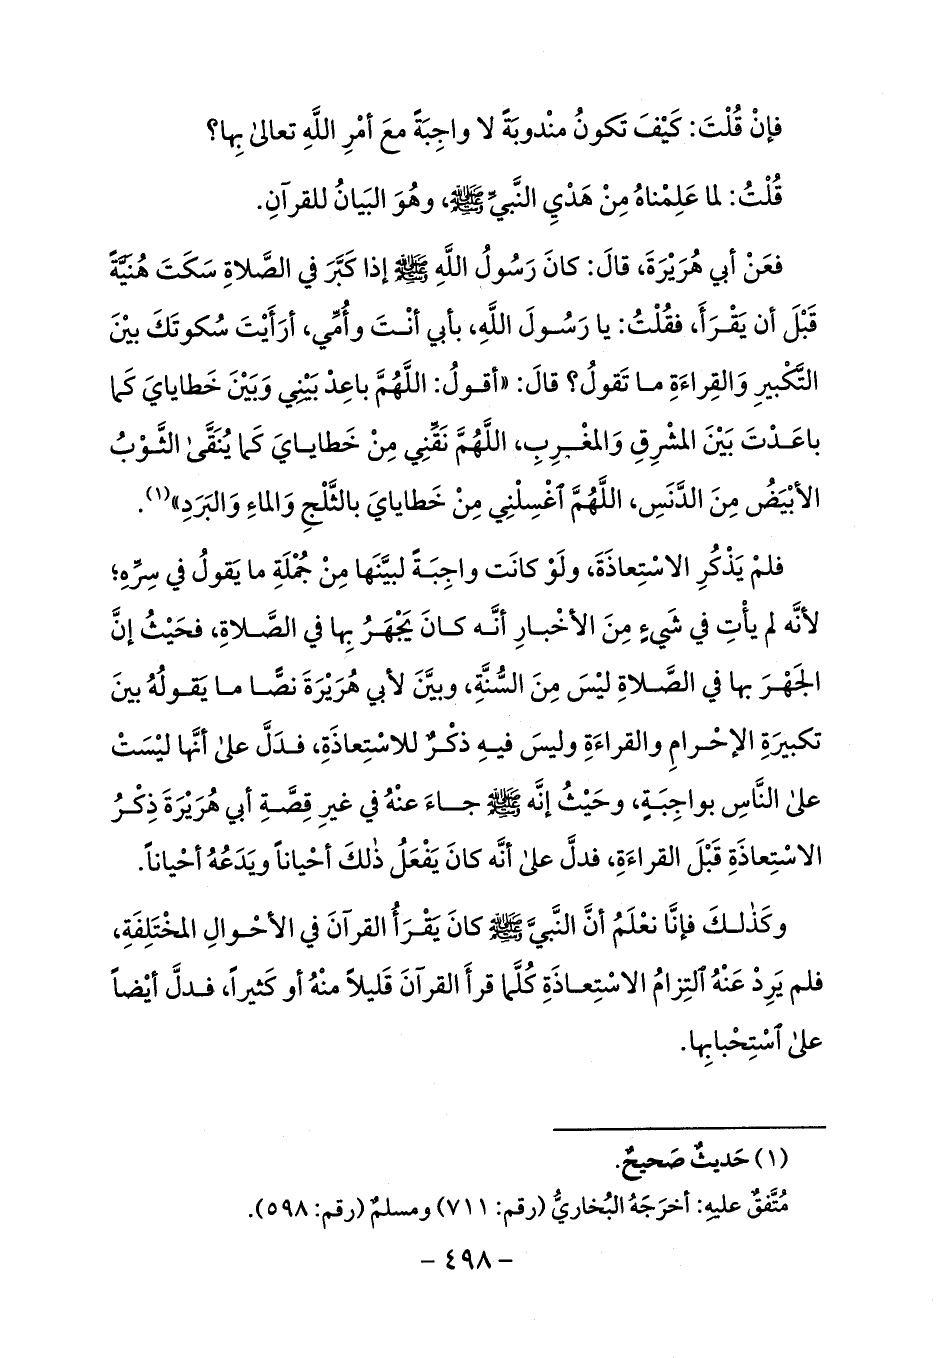 فإنْ قُلْتَ: كَيْفَ تَكونُ منْدوبَةً لا واجِبَةً معَ أمْرِ اللَّهِ تعالىٰ بِها؟
قُلْتُ: لما عَلِمْناهُ مِنْ هَدْيِ النَّبيِّ ﷺ، وهُوَ البَيانُ للقرآنِ.
فعَنْ أبي هُرَيْرَةَ، قالَ: كانَ رَسُولُ اللَّهِ ﷺ إذا كَبَّرَ في الصَّلاةِ سَكَتَ هُنَيَّةً
قَبْلَ أن يَقْـرَأَ، فقُلْتُ: يا رَسُـولَ اللَّهِ، بأبي أنْـتَ وأُمِّي، أرَأَيْتَ سُكوتَكَ بيْنَ
التَّكْبيرِ وَالقِراءَةِ مـا تَقولُ؟ قالَ: «أقـولُ: اللَّهُمَّ باعِدْ بَيْنِي وَبَيْنَ خَطايايَ كَما
باعَـدْتَ بَيْنَ المشْرِقِ وَالمغْـرِبِ، اللَّهُمَّ نَقِّنِي مِنْ خَطايـايَ كَما يُنَقَّىٰ الثَّـوْبُ
الأبْيَضُ مِنَ الدَّنَسِ، اللَّهُمَّ ٱغْسِلْنِي مِنْ خَطايايَ بالثَّلْجِ وَالماءِ وَالبَرَدِ»(١).
فلمْ يَذْكُرِ الاسْتِعاذَةَ، ولَوْ كانَت واجِبَـةً لبيَّنَها مِنْ جُمْلَةِ ما يَقولُ في سِرِّهِ؛
لأنَّه لم يأْتِ في شَيءٍ مِنَ الأخْبـارِ أنَّـه كـانَ يَجْهَرُ بِها في الصَّـلاةِ، فحَيْثُ إنَّ
الجَهْـرَ بها في الصَّلاةِ ليْسَ مِنَ السُّنَّةِ، وبيَّنَ لأبي هُرَيْرَةَ نصًّـا مـا يَقـولُهُ بينَ
تكبيرَةِ الإحْـرامِ والقراءَةِ وليسَ فيـهِ ذكْـرٌ للاسْتِعاذَةِ، فـدَلَّ علىٰ أنَّها ليْسَتْ
علىٰ النَّاسِ بواجِبَـةٍ، وحَيْثُ إنَّه ﷺ جـاءَ عنْهُ في غيرِ قِصَّـةِ أبي هُرَيْرَةَ ذِكْـرُ
الاسْتِعاذَةِ قَبْلَ القراءَةِ، فدلَّ علىٰ أنَّه كانَ يَفْعَلُ ذٰلكَ أحْياناً ويَدَعُهُ أحْياناً.
وكَذٰلـكَ فإنَّا نعْلَمُ أنَّ النَّبيَّ ﷺ كانَ يَقْرَأُ القرآنَ في الأحْـوالِ المخْتَلِفَةِ،
فلم يَرِدْ عَنْهُ ٱلتِزامُ الاسْتِعـاذَةِ كُلَّما قرأَ القرآنَ قَليلاً منْهُ أو كَثيراً، فـدلَّ أيْضـاً
علىٰ ٱسْتِحْبابِها.
(١) حَديثٌ صَحيحٌ.
مُتَّفقٌ عليهِ: أخرَجَهُ البُخاريُّ (رقم: ٧١١) ومسلمٌ (رقم: ٥٩٨).
- ٤٩٨ -